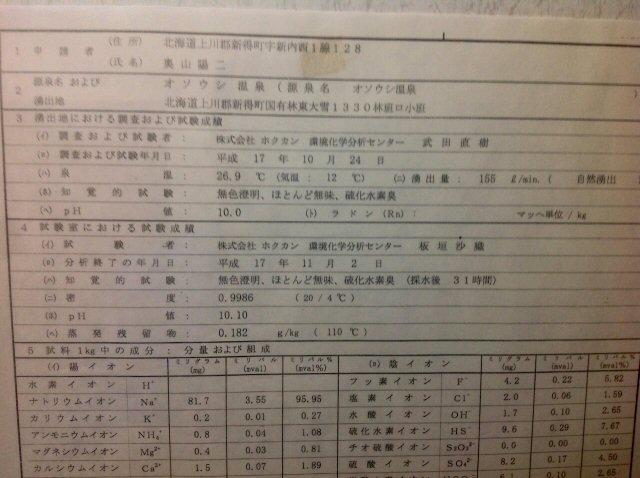 1 申請者 (住所) 北海道上川郡新得町字新内西1線128
(氏名) 奥山陽二
2 源泉名および オソウシ 温泉 (源泉名 オソウシ温泉 )
湧出地 北海道上川郡新得町国有林東大雪1330林班ロ小班
3 湧出地における調査および試験成績
(イ) 調査および試験者: 株式会社 ホクカン 環境化学分析センター 武田直樹
(ロ) 調査および試験年月日: 平成 17 年 10 月 24 日
(ハ) 泉温: 26.9 ℃ (気温: 12 ℃) (ニ) 湧出量: 155 ℓ/min. ( 自然湧出
(ホ) 知覚的試験: 無色澄明、ほとんど無味、硫化水素臭
(ヘ) pH値: 10.0 (ト) ラドン (Rn): マッヘ単位/kg
4 試験室における試験成績
(イ) 試験者: 株式会社 ホクカン 環境化学分析センター 板垣沙織
(ロ) 分析終了の年月日: 平成 17 年 11 月 2 日
(ハ) 知覚的試験: 無色澄明、ほとんど無味、硫化水素臭 (採水後 31時間)
(ニ) 密度: 0.9986 (20/4℃)
(ホ) pH値: 10.10
(ヘ) 蒸発残留物: 0.182 g/kg (110℃)
5 試料1kg中の成分: 分量および組成
(イ) 陽イオン ミリグラム (mg) ミリバル (mval) ミリバル% (mval%) (ロ) 陰イオン ミリグラム (mg) ミリバル (mval) ミリバル% (mval%)
水素イオン H⁺ フッ素イオン F⁻ 4.2 0.22 5.82
ナトリウムイオン Na⁺ 81.7 3.55 95.95 塩素イオン Cl⁻ 2.0 0.06 1.59
カリウムイオン K⁺ 0.2 0.01 0.27 水酸イオン OH⁻ 1.7 0.10 2.65
アンモニウムイオン NH₄⁺ 0.8 0.04 1.08 硫化水素イオン HS⁻ 9.6 0.29 7.67
マグネシウムイオン Mg²⁺ 0.4 0.03 0.81 チオ硫酸イオン S₂O₃²⁻ 0.0 0.00 0.00
カルシウムイオン Ca²⁺ 1.5 0.07 1.89 硫酸イオン SO₄²⁻ 8.2 0.17 4.50
0.10 2.65